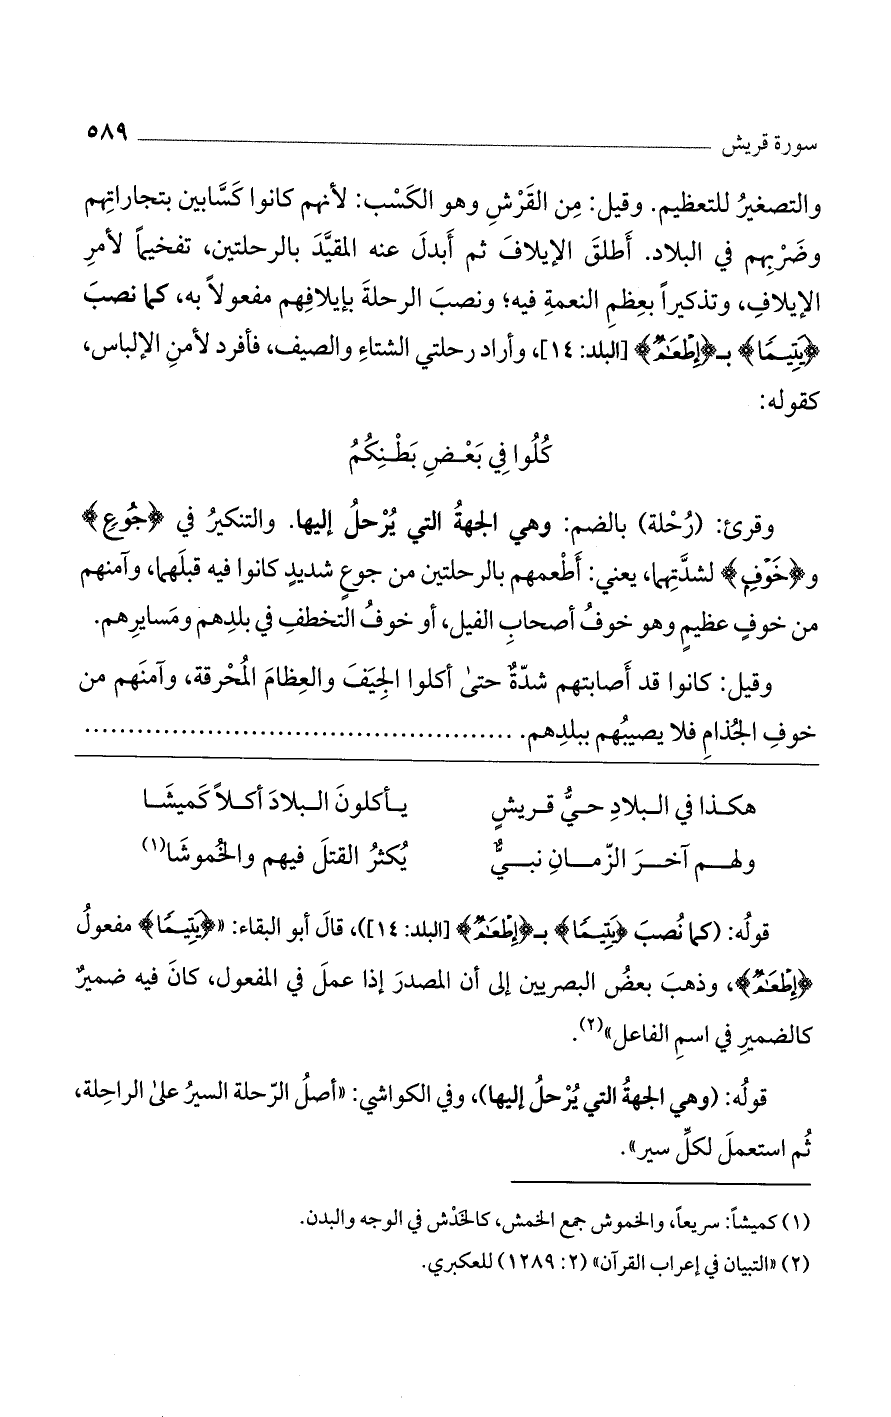 سورة قريش ٥٨٩
والتصغيرُ للتعظيم. وقيل: مِن القَرْشِ وهو الكَسْب: لأنهم كانوا كَسَّابين بتجاراتِهم
وضَرْبِهم في البلاد. أَطلقَ الإيلافَ ثم أَبدلَ عنه المقيَّدَ بالرحلتين، تفخيماً لأمرِ
الإيلافِ، وتذكيراً بعِظمِ النعمةِ فيه؛ ونصبَ الرحلةَ بإيلافِهم مفعولاً به، كما نصبَ
﴿يَتِيمًا﴾ بـ﴿إِطْعَـٰمٌ﴾ [البلد: ١٤]، وأراد رحلتي الشتاءِ والصيف، فأفرد لأمنِ الإلباس،
كقوله:
كُلُوا فِي بَعْـضِ بَطْـنِكُمُ
وقرئ: (رُحْلة) بالضم: وهي الجهةُ التي يُرْحلُ إليها. والتنكيرُ في ﴿جُوعٍ﴾
و﴿خَوْفٍ﴾ لشدَّتِهما، يعني: أَطْعمهم بالرحلتين من جوعٍ شديدٍ كانوا فيه قبلَهما، وآمنهم
من خوفٍ عظيمٍ وهو خوفُ أصحابِ الفيل، أو خوفُ التخطفِ في بلدِهم ومَسايرِهم.
وقيل: كانوا قد أَصابتهم شدّةٌ حتىٰ أكلوا الجِيَفَ والعِظامَ المُحْرقة، وآمنَهم من
خوفِ الجُذامِ فلا يصيبُهم ببلدِهم. ................................................
هكـذا في الـبلادِ حـيُّ قـريشٍ يـأكلونَ الـبلادَ أكـلاً كَميشَـا
ولهـم آخـرَ الزّمـانِ نبـيٌّ يُكثرُ القتلَ فيهم والخُموشَا(١)
قولُه: (كما نُصبَ ﴿يَتِيمًا﴾ بـ﴿إِطْعَـٰمٌ﴾ [البلد: ١٤])، قالَ أبو البقاء: «﴿يَتِيمًا﴾ مفعولُ
﴿إِطْعَـٰمٌ﴾، وذهبَ بعضُ البصريين إلى أن المصدرَ إذا عملَ في المفعول، كانَ فيه ضميرٌ
كالضميرِ في اسمِ الفاعل»(٢).
قولُه: (وهي الجهةُ التي يُرْحلُ إليها)، وفي الكواشي: «أصلُ الرّحلة السيرُ علىٰ الراحِلة،
ثُم استعملَ لكلِّ سير».
(١) كميشاً: سريعاً، والخموش جمع الخمش، كالخَدْش في الوجه والبدن.
(٢) «التبيان في إعراب القرآن» (٢: ١٢٨٩) للعكبري.